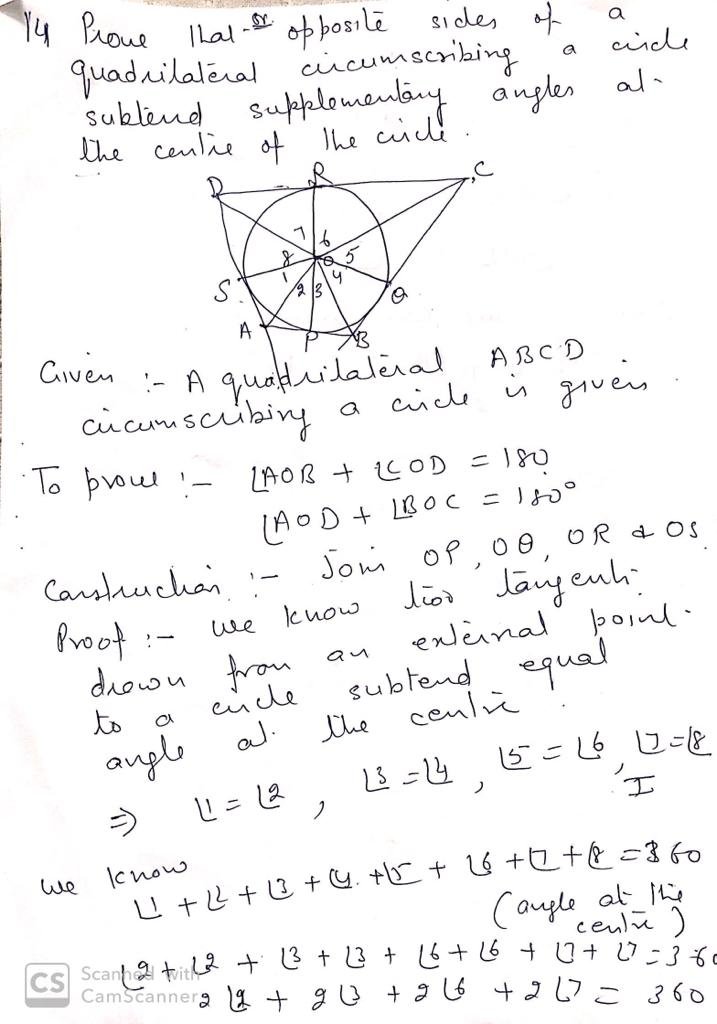 14 Prove that opposite sides of a
quadrilateral circumscribing a circle
subtend supplementary angles at
the centre of the circle.
D R C
7 6
8 O 5
1 4
S 2 3 Q
A P B
Given :- A quadrilateral ABCD
circumscribing a circle is given.
To prove :- ∠AOB + ∠COD = 180
∠AOD + ∠BOC = 180°
Construction :- Join OP, OQ, OR & OS
Proof :- we know two tangents
drawn from an external point
to a circle subtend equal
angle at the centre.
⇒ ∠1 = ∠2, ∠3 = ∠4, ∠5 = ∠6, ∠7 = ∠8
I
we know
∠1 + ∠2 + ∠3 + ∠4 + ∠5 + ∠6 + ∠7 + ∠8 = 360
(angle at the
centre)
∠2 + ∠2 + ∠3 + ∠3 + ∠6 + ∠6 + ∠7 + ∠7 = 360
2∠2 + 2∠3 + 2∠6 + 2∠7 = 360
CS Scanned with
CamScanner